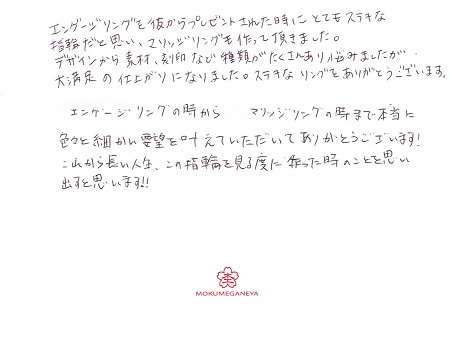 エンゲージリングを彼からプレゼントされた時にとてもステキな
指輪だと思い、マリッジリングも作って頂きました。
デザインから素材、刻印など種類がたくさんあり悩みましたが
大満足の仕上がりになりました。ステキなリングをありがとうございます。
エンゲージリングの時から マリッジリングの時まで本当に
色々と細かい要望を叶えていただいてありがとうございます!
これから長い人生、この指輪を見る度に作った時のことを思い
出すと思います!!
MOKUMEGANEYA